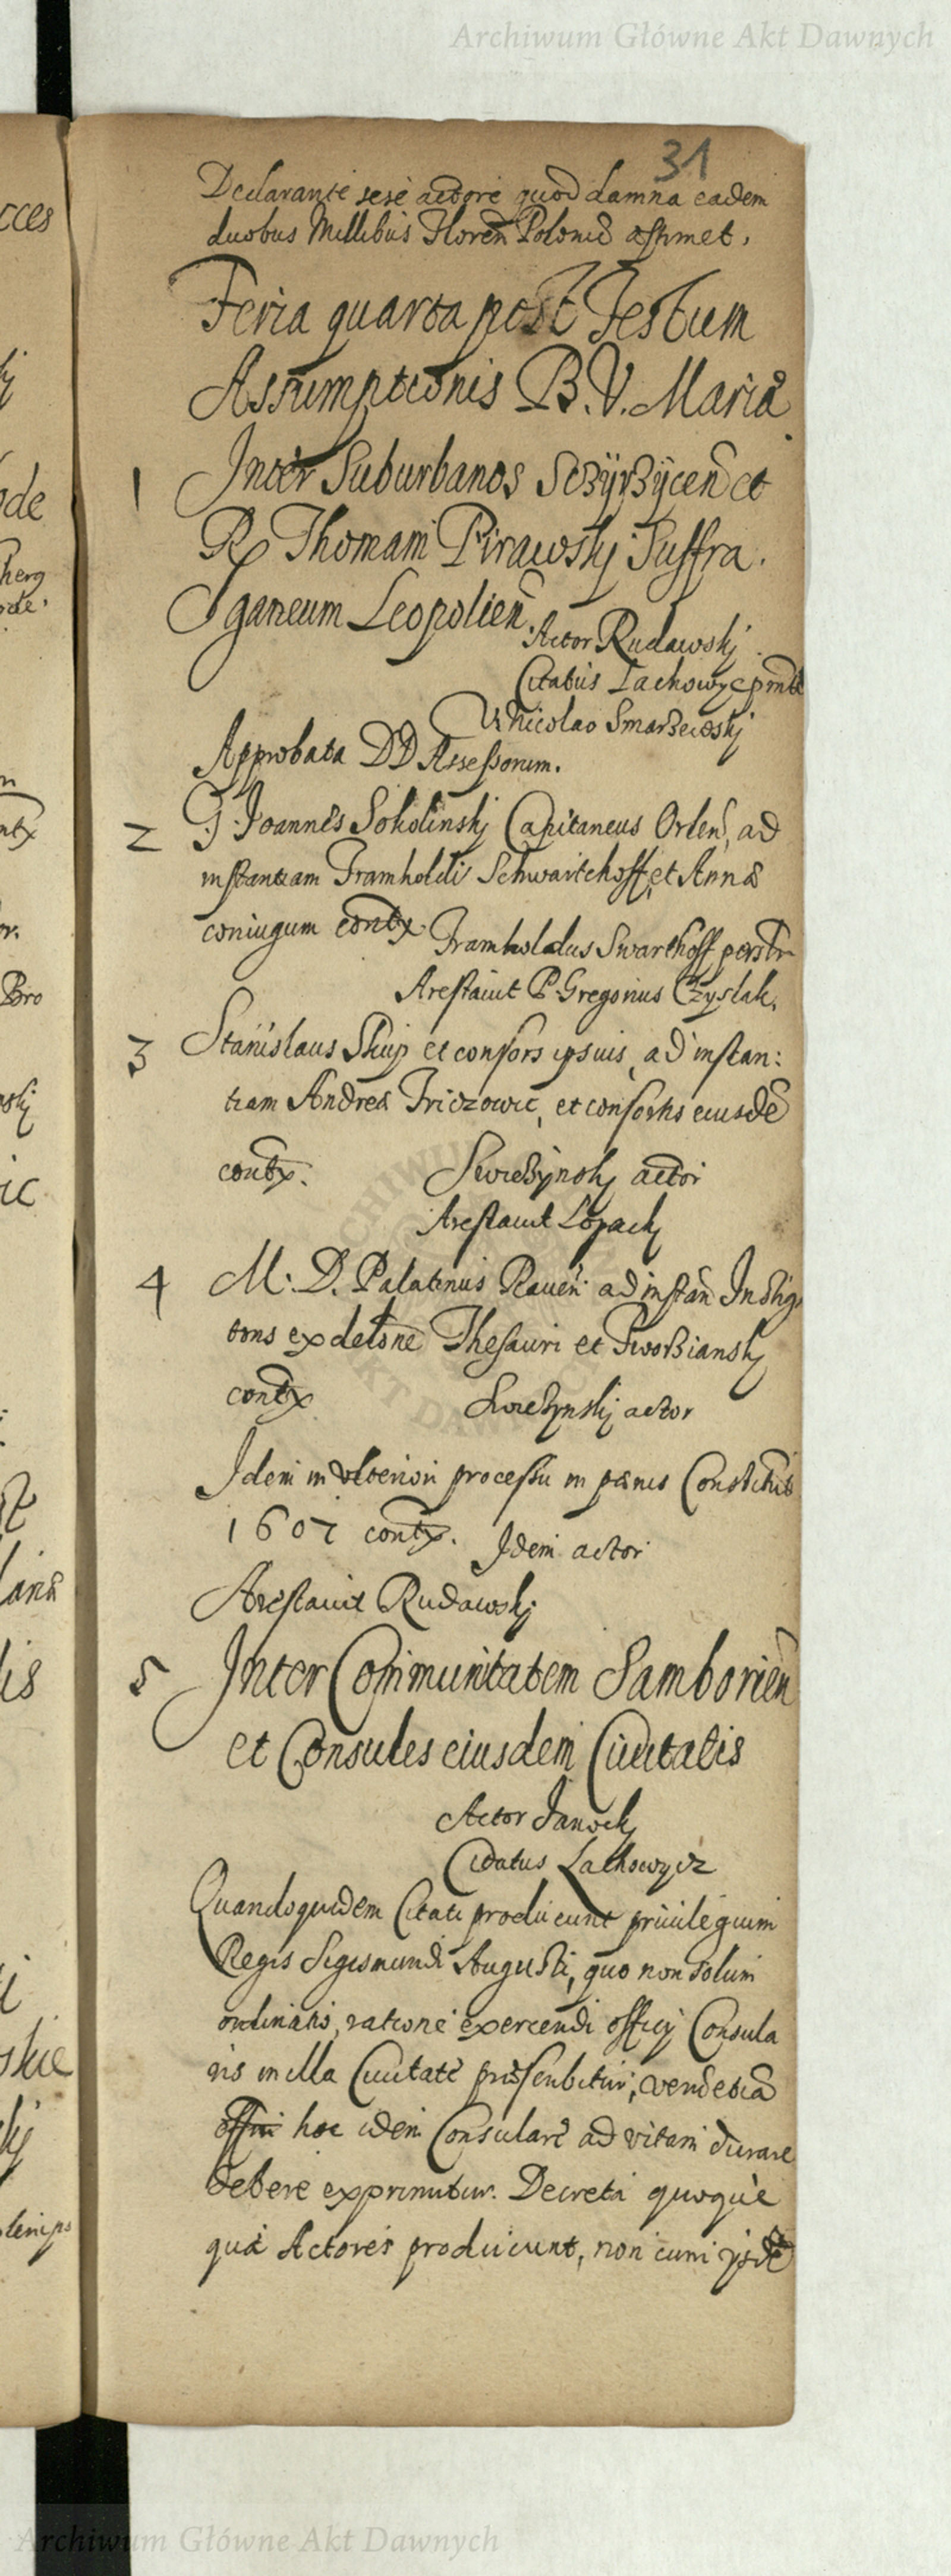 Archiwum Główne Akt Dawnych
31
Declarante sese actore quod damna eadem
duobus Millibus Floren Polonic estimet.
Feria quarta post Festum
Assumptionis B. V. Mariæ
1 Inter Suburbanos Sczÿrzÿcen et
R Thomam Pirawskj Suffra.
ganeum Leopolien.
Actor Rudawskj
Citatus Lachowyc pmtt
Nicolao Smarzewskj
Approbata DD Assessorum.
2 G. Joannes Sokolinskj Capitaneus Orlen, ad
instantiam Framholdi Schwartchoff, et Annæ
coniugum contx. Framholdus Swarthoff perstr
Arestauit P. Gregorius Czyslak.
3 Stanislaus Skup et consors ipsius, ad instan:
tiam Andreæ Friczowic, et consortis eiusdē
contx. Swieżynskj actor
Arestauit Lopackj
4 M. D. Palatinus Rauen ad instān Instig
toris ex delōne Thesauri et Tworzianskj
contx Swieżynskij actor
Idem in vlteriori processu in pænis Constitut
1607 contx. Idem actor
Arestauit Rudawskj
5 Inter Communitatem Samborien
et Consules eiusdem Ciuitatis
Actor Janockj
Citatus Lachowycz
Quandoquidem Citati producunt priuilegium
Regis Sigismundi Augusti, quo non solum
ordinatis, ratione exercendi officij Consula
ris in illa Ciuitate præscribitur, verum etiā
offin hoc idem Consulare ad vitam durare
debere exprimitur. Decreta quoque
quæ Actores producunt, non cum ijsdē
Archiwum Główne Akt Dawnych